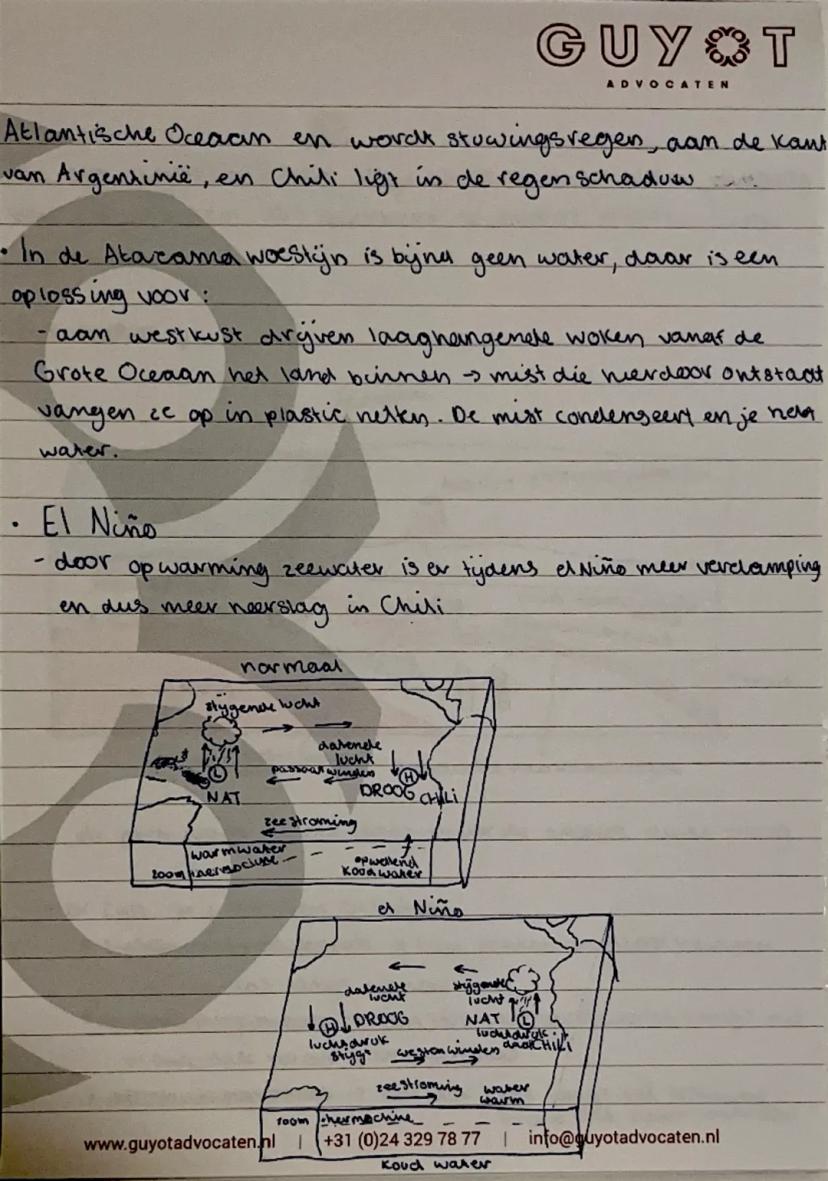 GUYOT
ADVOCATEN
Atlantische Oceaan en wordt stuwingsregen, aan de kant
van Argentinië, en Chili ligt in de regenschaduw
• In de Atacama woestijn is bijna geen water, daar is een
oplossing voor:
- aan westkust drijven laaghangende wolken vanaf de
Grote Oceaan het land binnen → mist die hierdoor ontstaat
vangen ze op in plastic netten. De mist condenseert en je hebt
water.
• El Niño
- door opwarming zeewater is er tijdens el Niño meer verdamping
en dus meer neerslag in Chili
normaal
stijgende lucht
dalende
lucht
passaatwinden
L
H
NAT
DROOG
CHILI
zeestroming
warm water
200m
opwellend
koud water
el Niño
dalende
lucht
stijgende
lucht
H DROOG
NAT L
luchtdruk
stijgt
luchtdruk
daalt CHILI
westenwinden
zeestroming
water
warm
200m
www.guyotadvocaten.nl | +31 (0)24 329 78 77 | info@guyotadvocaten.nl
koud water